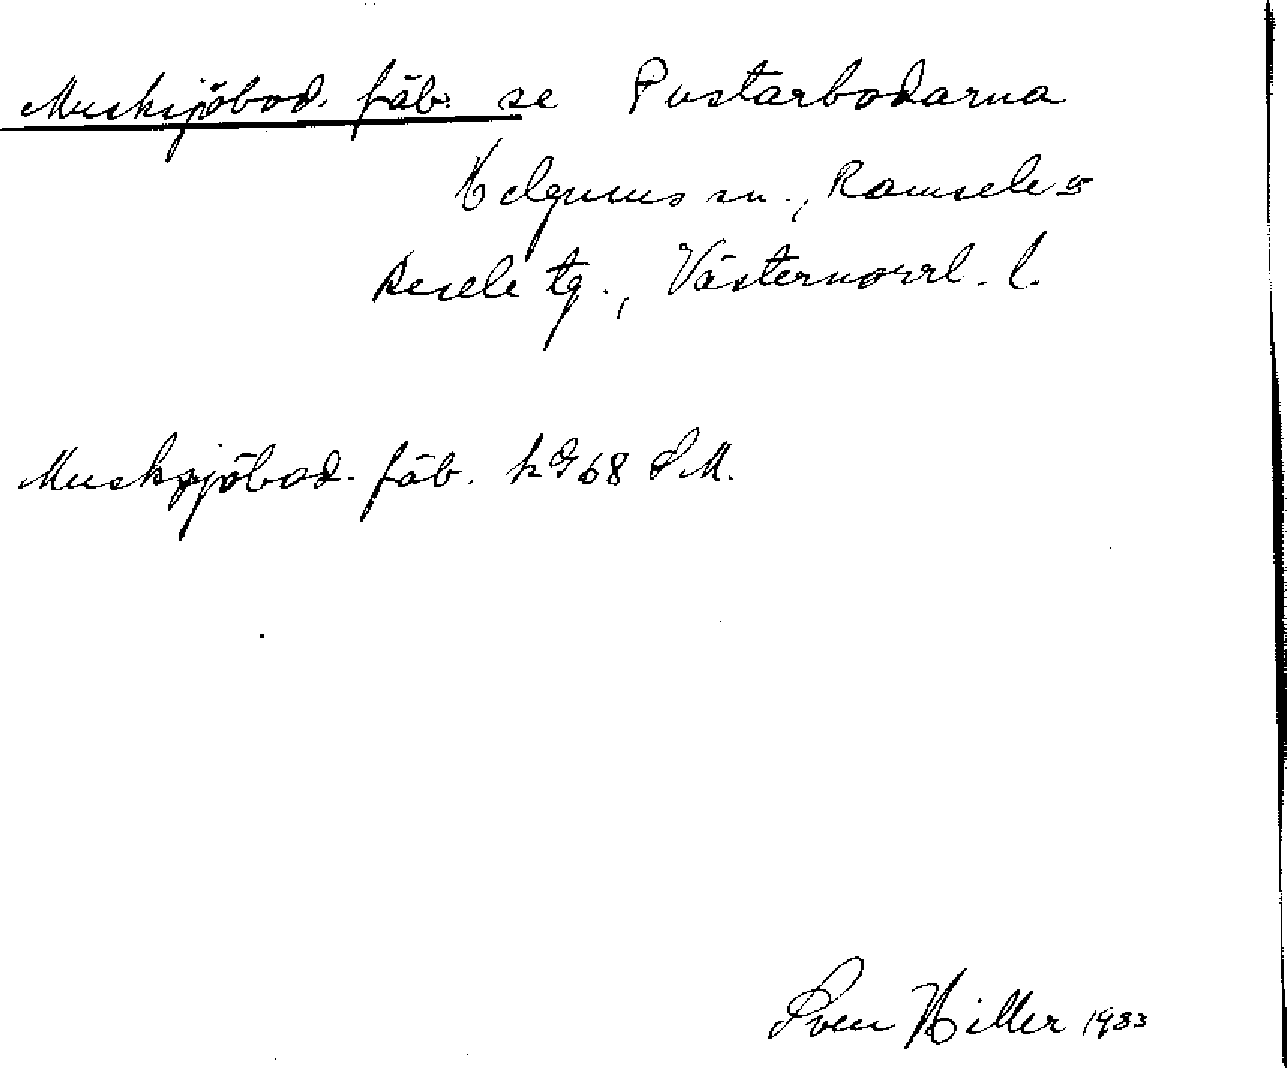 Musksjöbod. fäb. se Pustarbodarna
Helgums sn., Ramsele o
Resele tg., Västernorrl. l.
Musksjöbod. fäb. k 68 SM.
Sven Hiller 1933